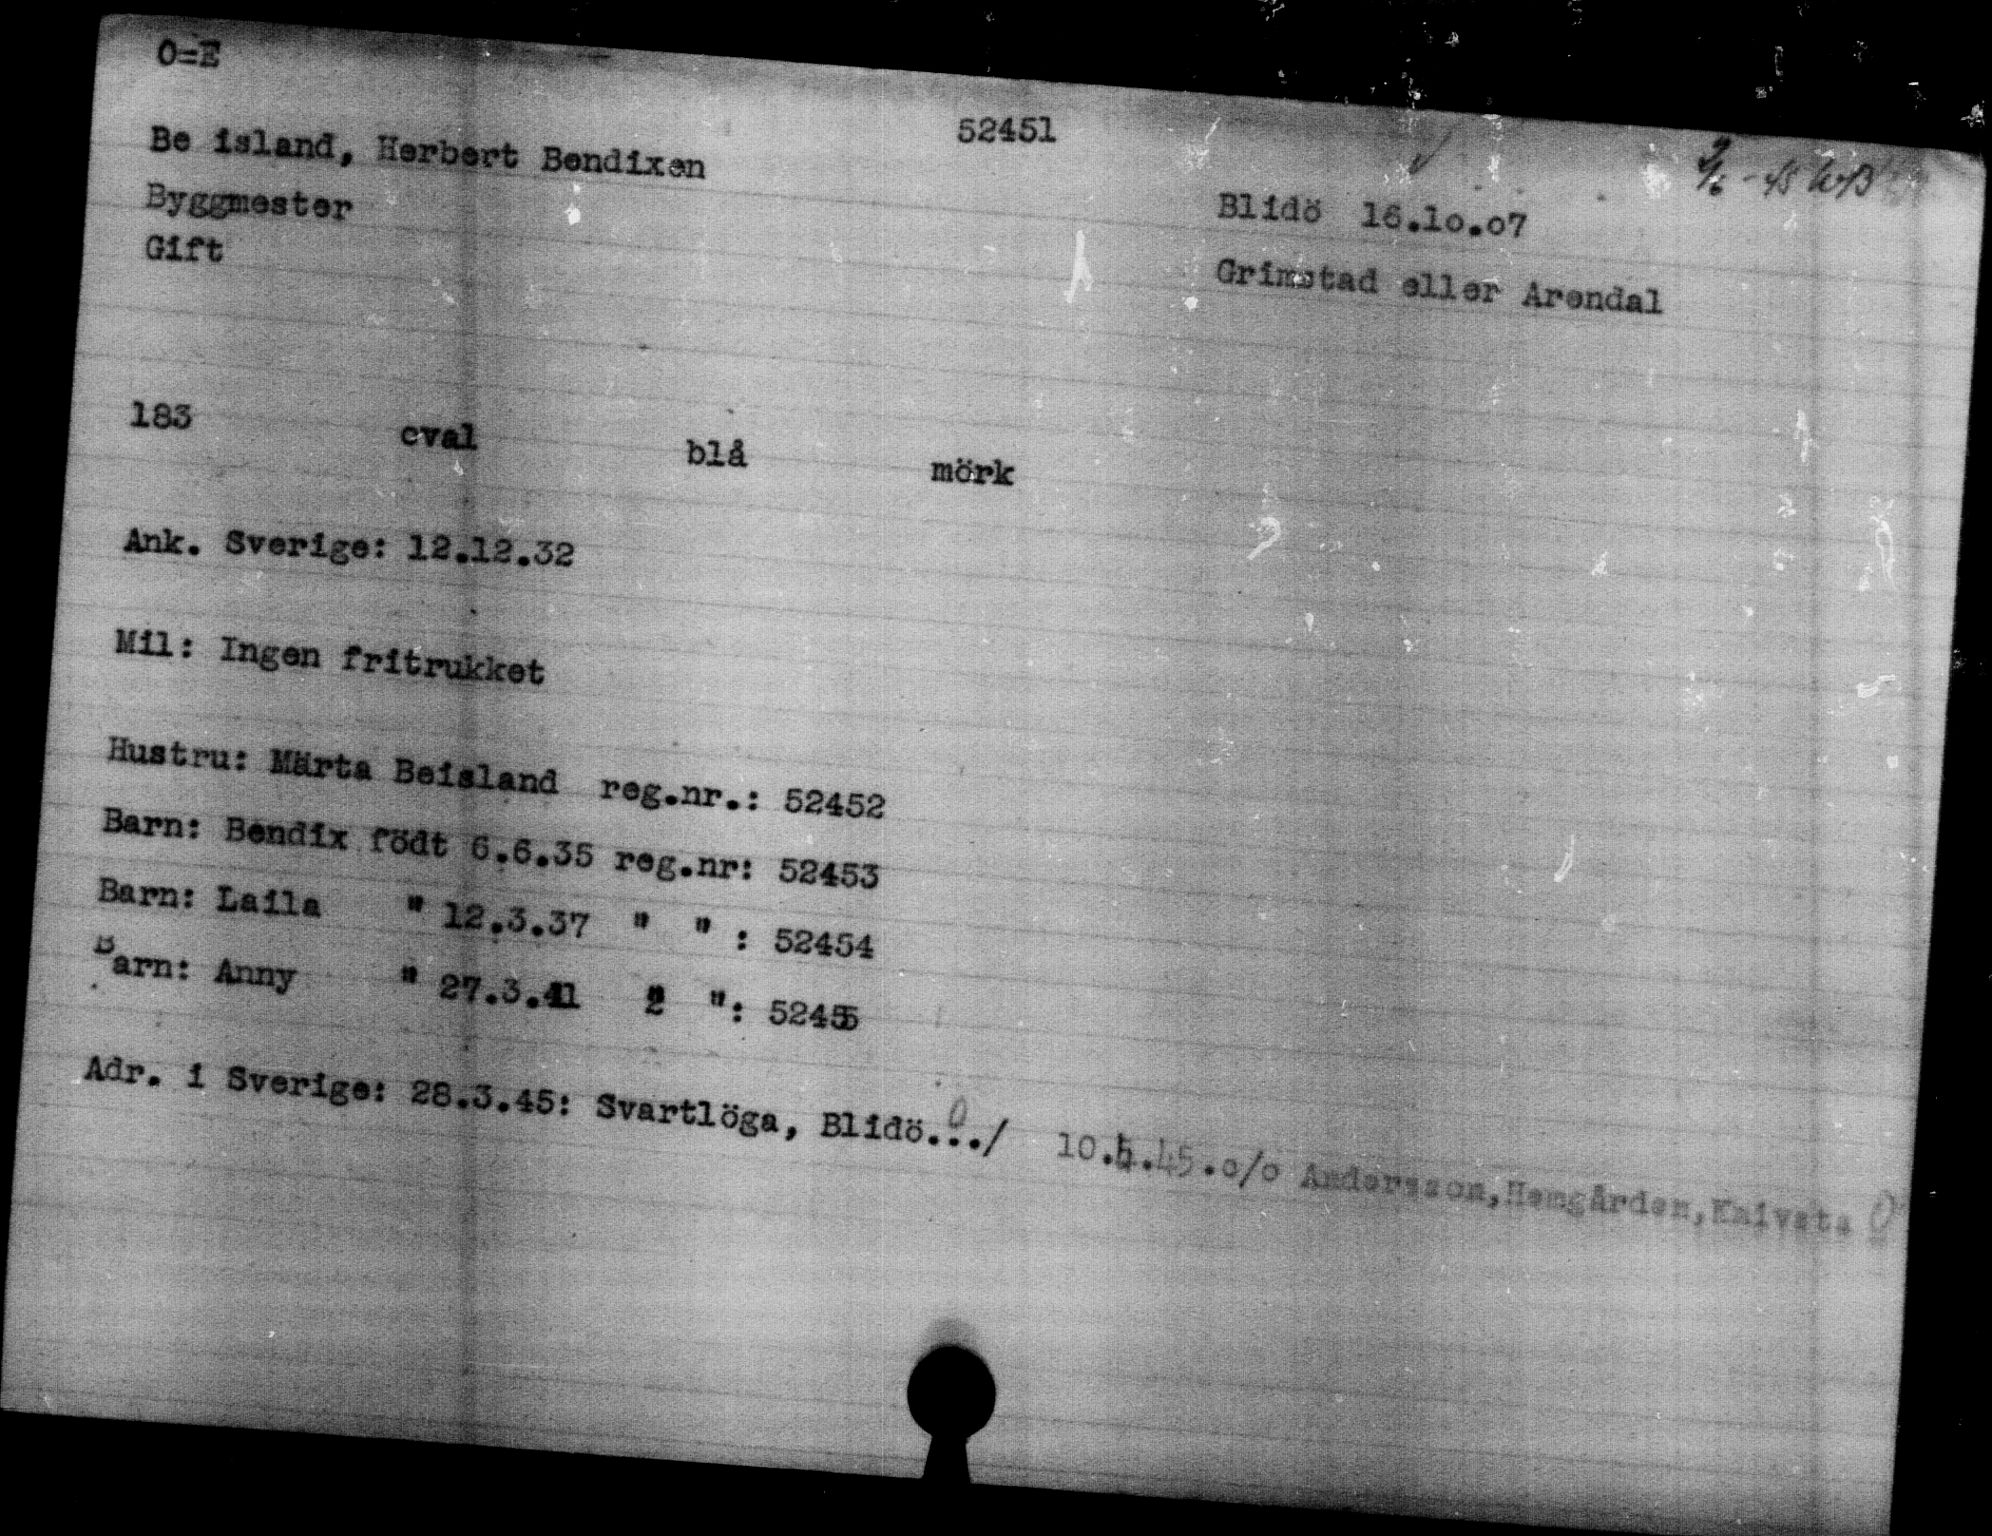 O=E
52451
Be island, Herbert Bendixen
Byggmester
Gift
Blidö 16.10.07
Grimstad eller Arendal
183 cval blå mörk
Ank. Sverige: 12.12.32
Mil: Ingen fritrukket
Hustru: Märta Beisland reg.nr.: 52452
Barn: Bendix födt 6.6.35 reg.nr: 52453
Barn: Laila " 12.3.37 " " : 52454
Barn: Anny " 27.3.41 " ": 52455
Adr. i Sverige: 28.3.45: Svartlöga, Blidö.../ 10.4.45.c/o Andersson,Hemgården,Knivsta